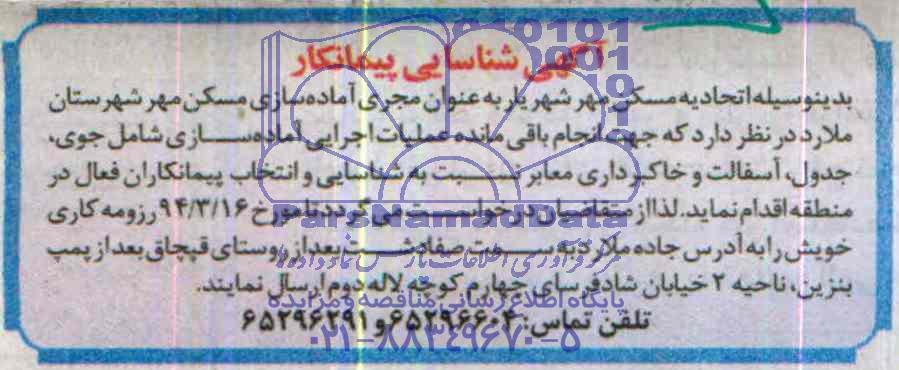 آگهی شناسایی پیمانکار
بدینوسیله اتحادیه مسکن مهر شهریار به عنوان مجری آماده‌سازی مسکن مهر شهرستان
ملارد در نظر دارد که جهت انجام باقی مانده عملیات اجرایی آماده‌سازی شامل جوی،
جدول، آسفالت و خاکبرداری معابر نسبت به شناسایی و انتخاب پیمانکاران فعال در
منطقه اقدام نماید. لذا از متقاضیان درخواست می گردد تا مورخ ۹۴/۳/۱۶ رزومه کاری
خویش را به آدرس جاده ملارد به سمت صفادشت بعد از روستای قپچاق بعد از پمپ
بنزین، ناحیه ۲ خیابان شادفر سای چهارم کوچه لاله دوم ارسال نمایند.
تلفن تماس: ۶۵۲۹۶۶۰۴ و ۶۵۲۹۶۲۹۱
ParsNamadData
مرکز فرآوری اطلاعات پارس نماد داده‌ها
پایگاه اطلاع رسانی مناقصه و مزایده
۰۲۱-۸۸۳۴۹۶۷۰-۵